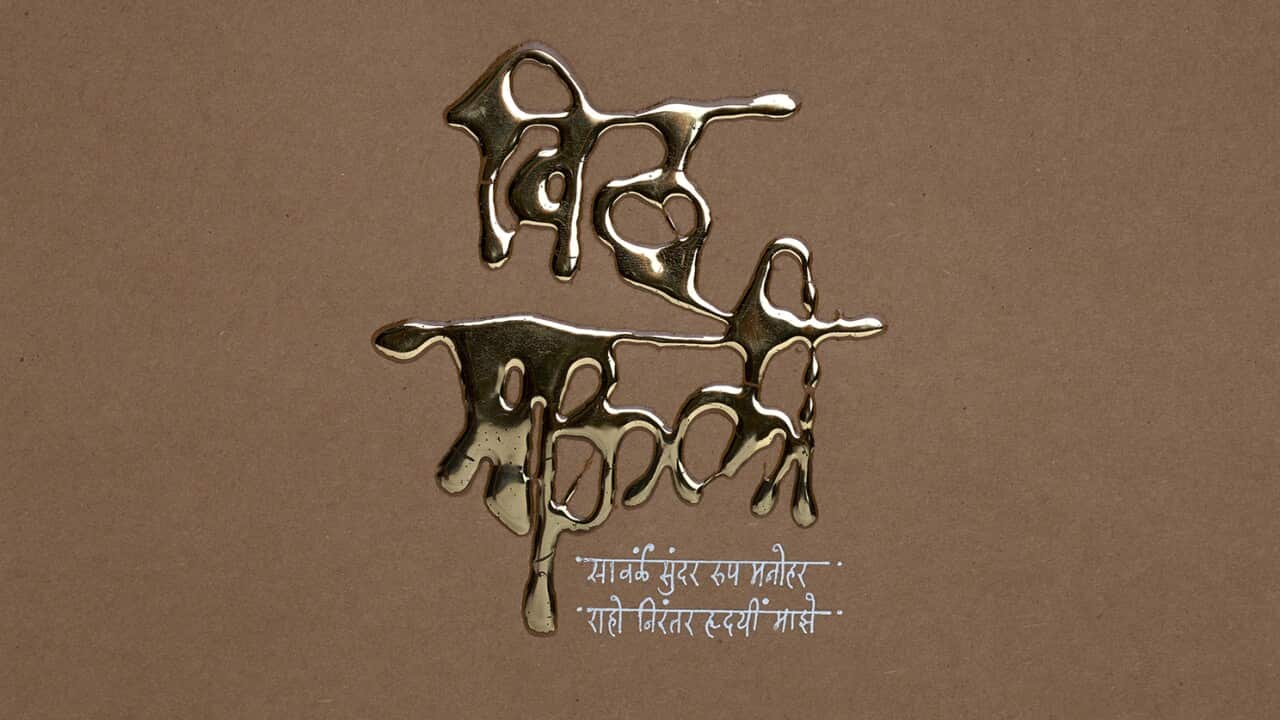 विठू
माऊली
सावळें सुंदर रुप मनोहर
राहो निरंतर हृदयीं माझे